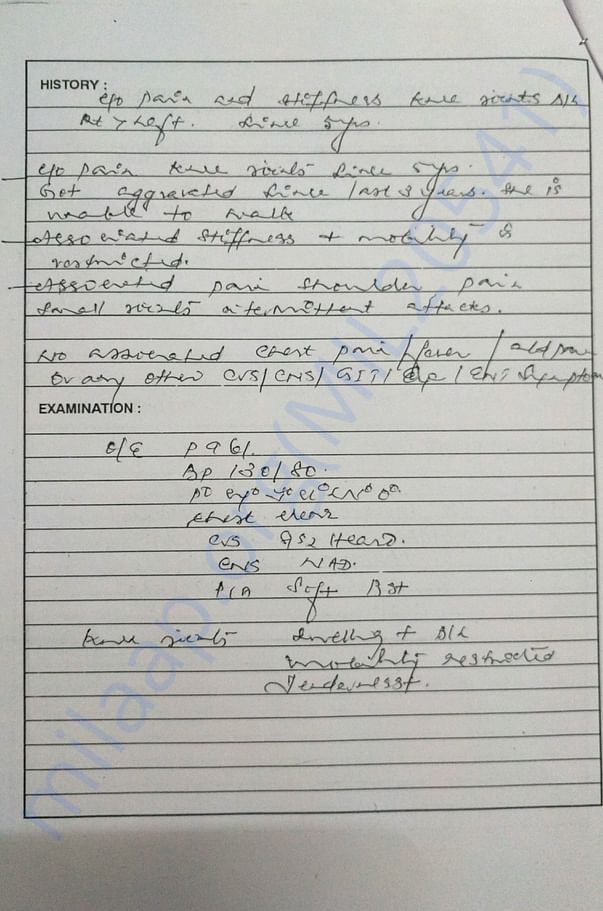 HISTORY :
c/o pain and stiffness knee joints B/L
Rt > Left. since 5yrs.
c/o pain knee joints since 5yrs.
Got aggravated since last 3 years. She is
unable to walk
Associated stiffness + mobility is
restricted.
Associated pain shoulder pain
small joints intermittent attacks.
No associated chest pain / fever /
or any other CVS/ CNS/ GIT/ / ENT symptom
EXAMINATION :
O/E P 96/.
BP 130/80.
chest clear
CVS S1S2 Heard.
CNS NAD.
P/A Soft
knee joints swelling + B/L
mobility restricted
Tenderness+.
milaap.org(MHL205541)